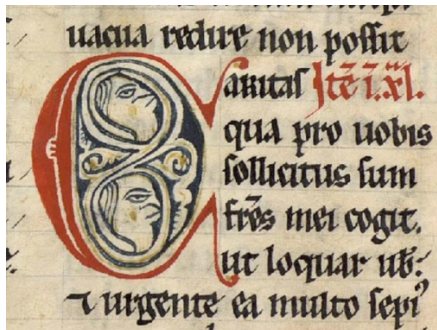 uacua redire non possit
Caritas Itē i. xl.
qua pro uobis
sollicitus sum
frēs mei cogit.
ut loquar ub̄:
⁊ urgente ea multo sepiꝰ